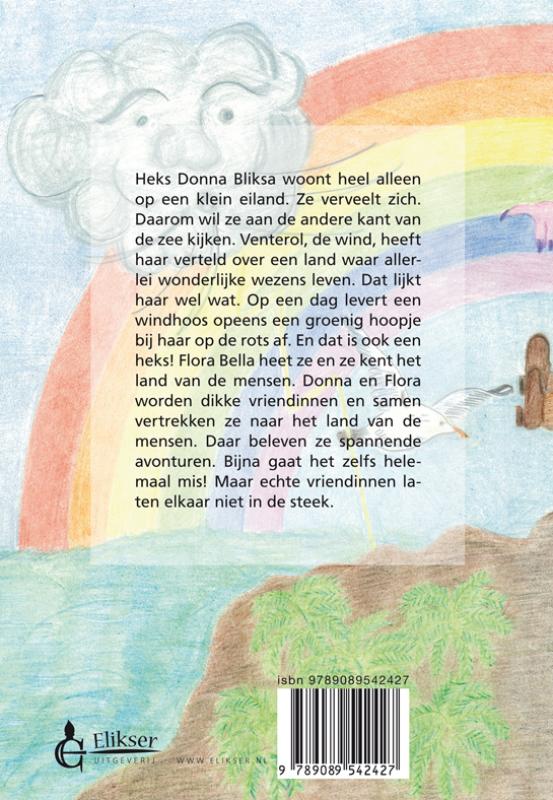 Heks Donna Bliksa woont heel alleen
op een klein eiland. Ze verveelt zich.
Daarom wil ze aan de andere kant van
de zee kijken. Venterol, de wind, heeft
haar verteld over een land waar aller-
lei wonderlijke wezens leven. Dat lijkt
haar wel wat. Op een dag levert een
windhoos opeens een groenig hoopje
bij haar op de rots af. En dat is ook een
heks! Flora Bella heet ze en ze kent het
land van de mensen. Donna en Flora
worden dikke vriendinnen en samen
vertrekken ze naar het land van de
mensen. Daar beleven ze spannende
avonturen. Bijna gaat het zelfs hele-
maal mis! Maar echte vriendinnen la-
ten elkaar niet in de steek.
isbn 9789089542427
9 789089 542427
Elikser
UITGEVERIJ WWW.ELIKSER.NL